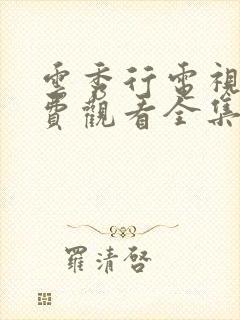 雲秀行電視
費觀看全集
羅清啓